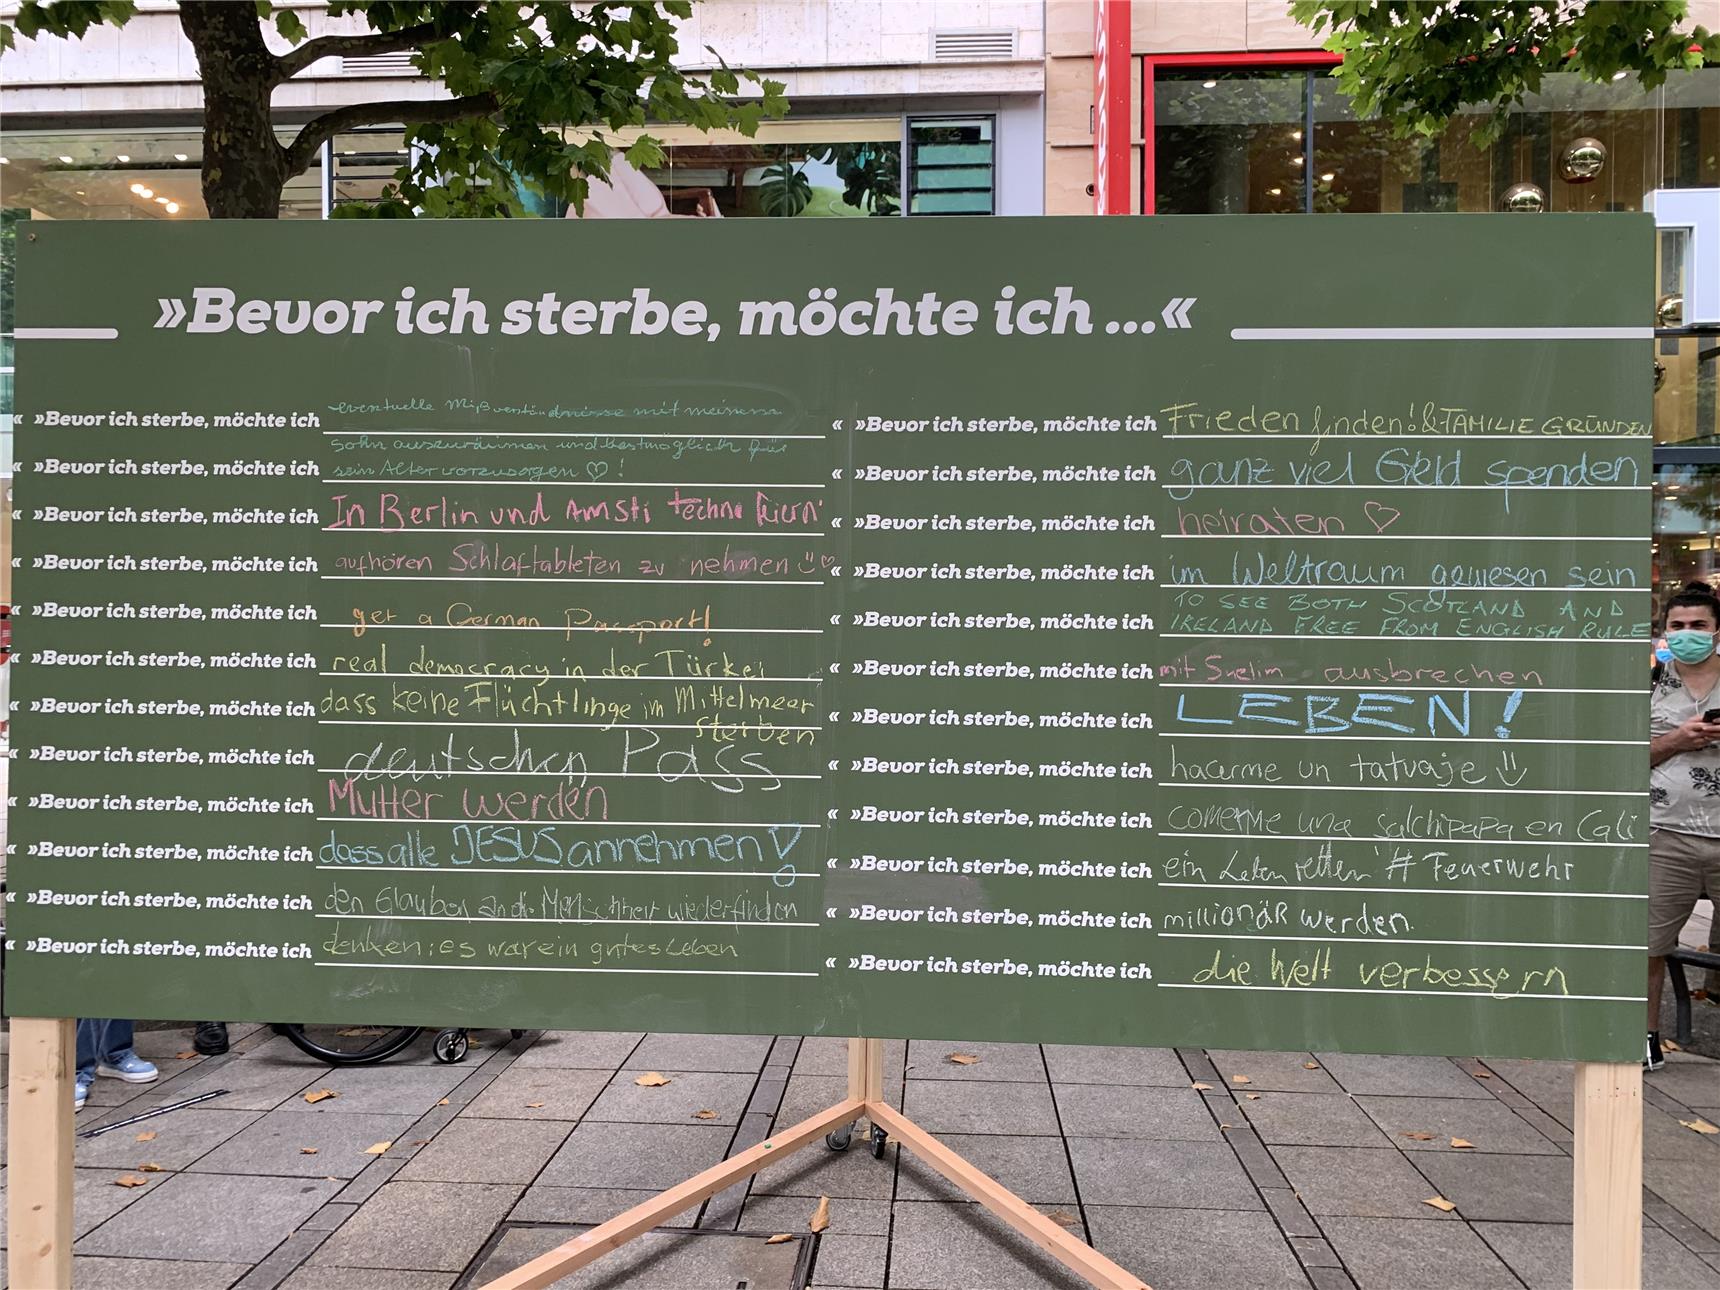 »Bevor ich sterbe, möchte ich ...«
»Bevor ich sterbe, möchte ich eventuelle Mißverständnisse mit meinem «
Sohn auszuräumen und bestmöglich für
»Bevor ich sterbe, möchte ich sein Alter vorzusorgen ♡ ! «
»Bevor ich sterbe, möchte ich In Berlin und Amsti techno feiern «
»Bevor ich sterbe, möchte ich aufhören Schlaftableten zu nehmen ♡ «
»Bevor ich sterbe, möchte ich get a German Passport! «
»Bevor ich sterbe, möchte ich real democracy in der Türkei «
»Bevor ich sterbe, möchte ich dass keine Flüchtlinge im Mittelmeer «
sterben
»Bevor ich sterbe, möchte ich deutschen Pass «
»Bevor ich sterbe, möchte ich Mutter werden «
»Bevor ich sterbe, möchte ich dass alle JESUS annehmen! «
»Bevor ich sterbe, möchte ich den Glauben an die Menschheit wiederfinden «
»Bevor ich sterbe, möchte ich denken: es war ein gutes Leben «
»Bevor ich sterbe, möchte ich Frieden finden! & FAMILIE GRÜNDEN
»Bevor ich sterbe, möchte ich ganz viel Geld spenden
»Bevor ich sterbe, möchte ich heiraten ♡
»Bevor ich sterbe, möchte ich im Weltraum gewesen sein
TO SEE BOTH SCOTLAND AND
»Bevor ich sterbe, möchte ich IRELAND FREE FROM ENGLISH RULE
»Bevor ich sterbe, möchte ich mit ausbrechen
»Bevor ich sterbe, möchte ich LEBEN!
»Bevor ich sterbe, möchte ich hacerme un tatuaje
»Bevor ich sterbe, möchte ich comerme una salchipapa en Cali
»Bevor ich sterbe, möchte ich ein Leben retten # Feuerwehr
»Bevor ich sterbe, möchte ich millionäR werden.
»Bevor ich sterbe, möchte ich die Welt verbessern